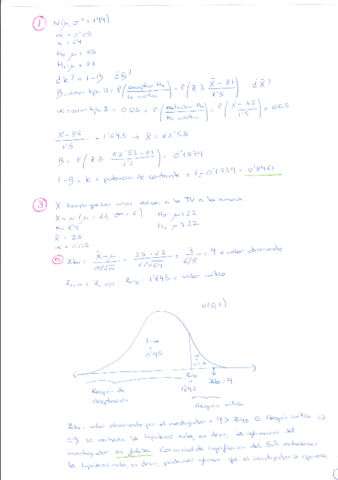 ① N(μ, σ² = 144)
α = 0'05
n = 64
H₀ μ = 85
H₁ μ = 81
¿k? = 1 - B ¿B?
B = error tipo II = P(aceptar H₀ / H₀ ) = P(Z ≥ X̄ - 81 / 1'5) ¿X̄?
α = error tipo I = 0'05 = P(rechazar H₀ / H₀ ) = P(X̄ - 85 / 1'5) = 0'05
X̄ - 85 / 1'5 = - 1'645 → X̄ = 82'53
B = P(Z ≥ 82'53 - 81 / 1'5) = 0'1539
1 - B = k = potencia de contraste = 1 - 0'1539 = 0'8461
③ X = tiempo que los niños a la TV a la semana
X ~ N(μ = 22, σ = 6) H₀ μ = 22
n = 64 H₁ μ > 22
X̄ = 25
α = 0'05
Zobs = X̄ - μ / σ/√n = 25 - 22 / 6/√64 = 3 / 6/8 = 4 = valor observado
= 1'645 = valor crítico
N(0,1)
1 - α = 0'95
Zobs = 4
Región de aceptación
Región crítica
Zobs = valor observado por el investigador = 4 > ∈ Región crítica ⇒
⇒ se rechaza la hipótesis nula, es decir, la afirmación del
investigador es falsa. Con un nivel de significación del 5% rechazamos
la hipótesis nula, es decir, podemos afirmar que el investigador